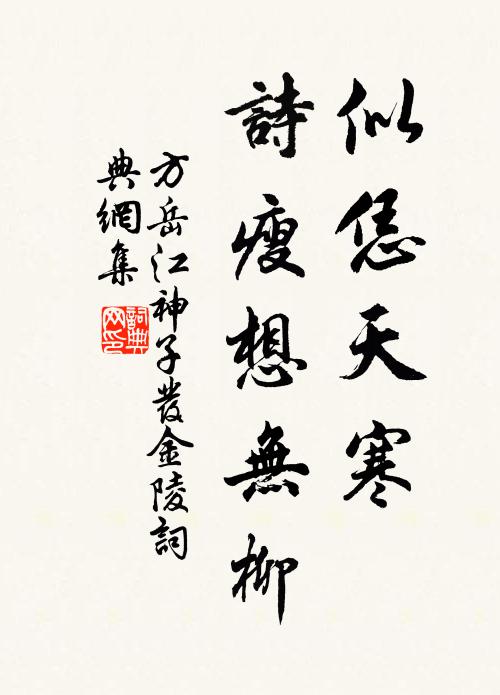 似恁天寒
詩瘦想無柳
方岳江神子發金陵詞
典網集
詞典
网印